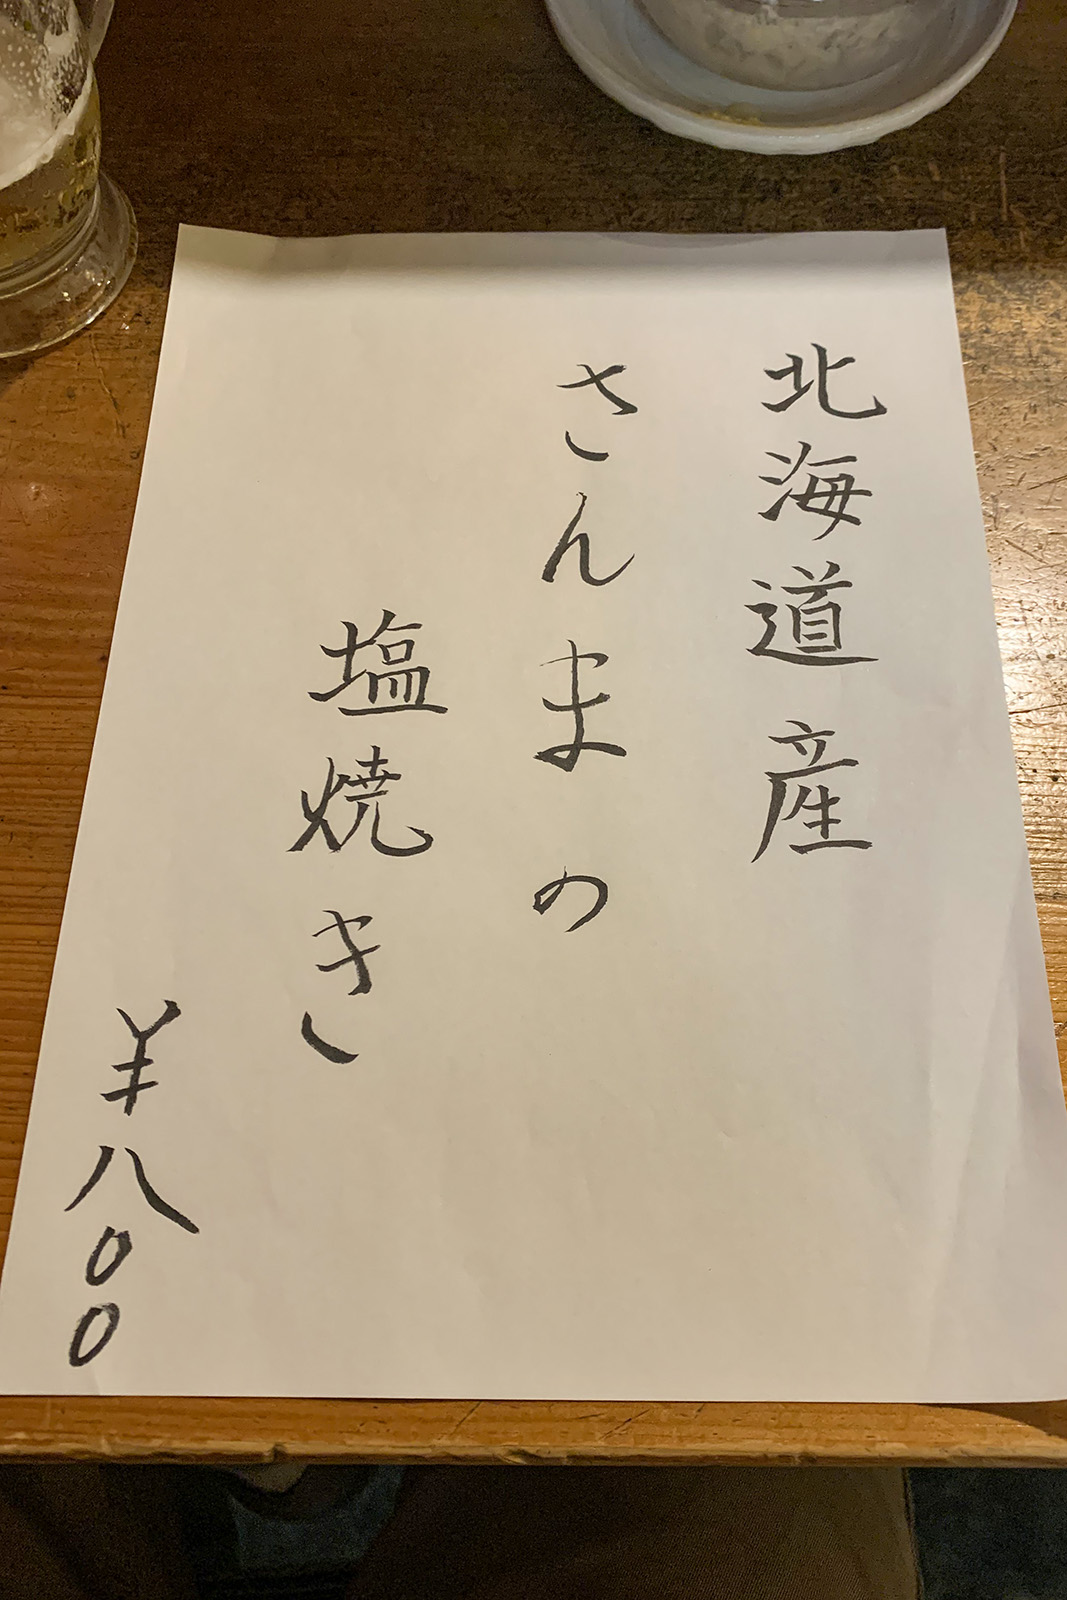 北海道産
さんまの
塩焼き
¥八00